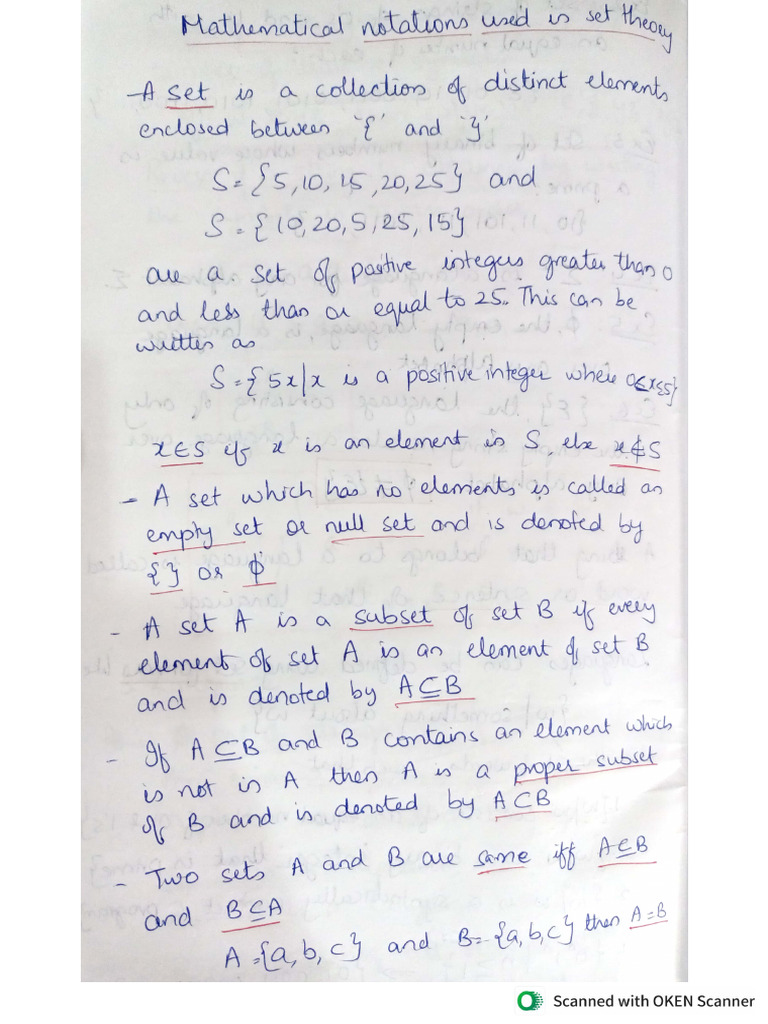 Mathematical notations used in set theory
- A set is a collection of distinct elements
enclosed between '{' and '}'
S = {5, 10, 15, 20, 25} and
S = {10, 20, 5, 25, 15}
are a set of positive integers greater than 0
and less than or equal to 25. This can be
written as
S = {5x | x is a positive integer where 0≤x≤5}
x∈S if x is an element in S, else x∉S
- A set which has no elements is called an
empty set or null set and is denoted by
{ } or ϕ
- A set A is a subset of set B if every
element of set A is an element of set B
and is denoted by A⊆B
- If A⊆B and B contains an element which
is not in A then A is a proper subset
of B and is denoted by A⊂B
- Two sets A and B are same iff A⊆B
and B⊆A
A = {a, b, c} and B = {a, b, c} then A=B
Scanned with OKEN Scanner